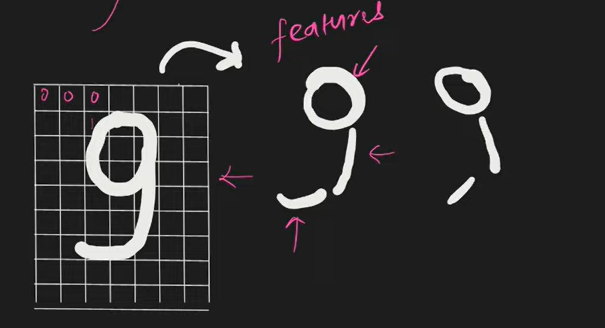 features
0 0 0
9